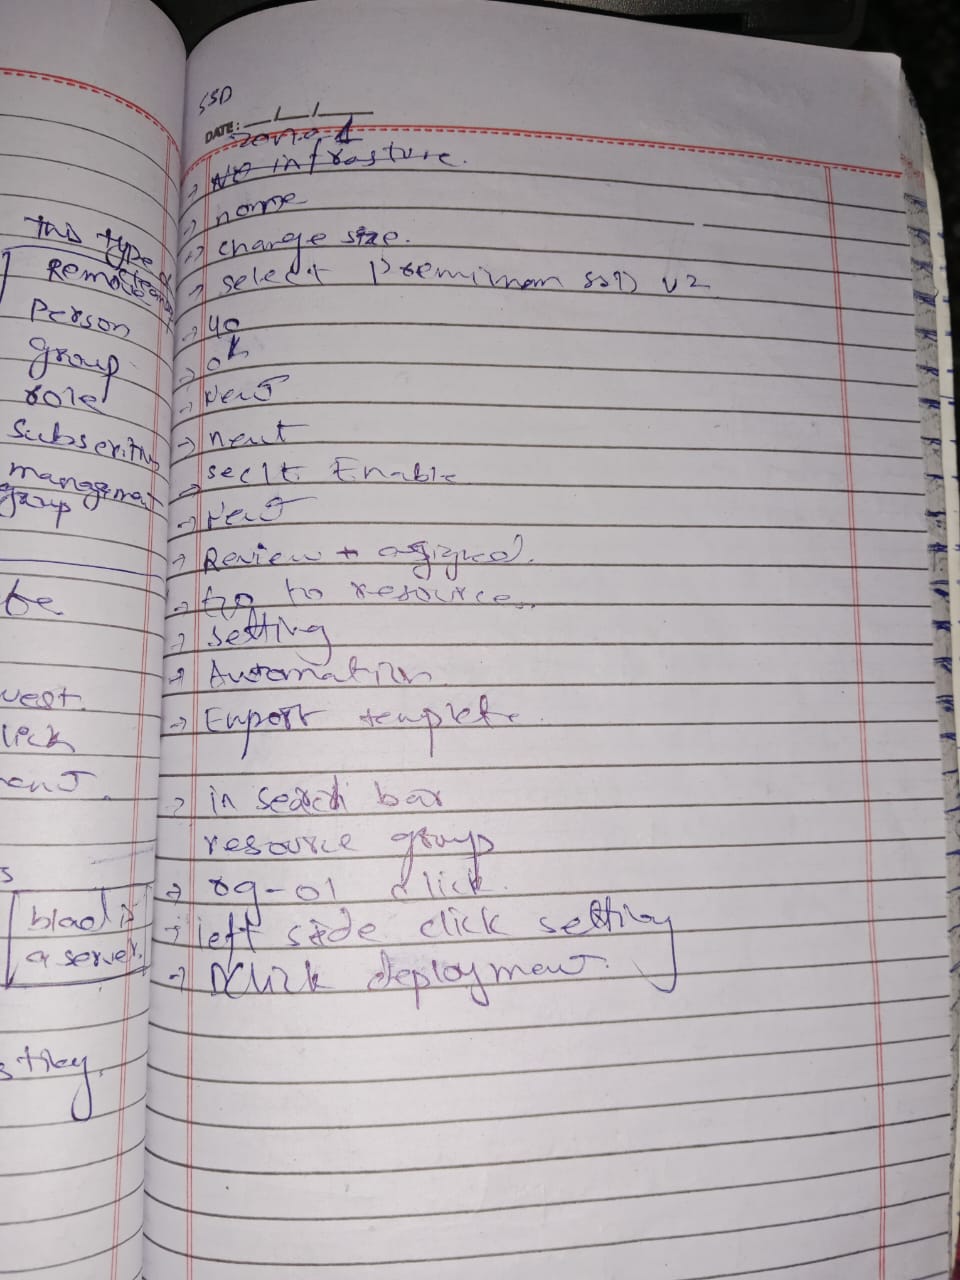 this type
Remote
Person
group
role
management
group
be
vest
lick
s
blad is
a server.
stiey.
SSD
DATE: __/__/__
zone-1
No infrasture.
name
-> change size.
-> select Premimam SSD v2
-> 40
-> ok
-> Next
-> next
-> seclt Enable
-> Next
-> Review + assigned.
-> go to resource..
-> setting
-> Automation
-> Export templete.
-> in search bar
resource group
-> rg-01 click.
-> left side click setting
-> click deployment.